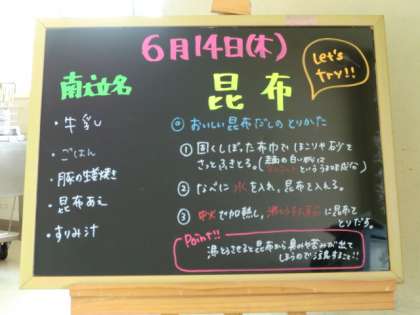 6月14日(木)
Let's try!!
献立名
昆布
・牛乳
・ごはん
・豚の生姜焼き
・昆布あえ
・すりみ汁
◎おいしい昆布だしのとりかた
① 固くしぼった布巾でほこりや砂を
さっとふきとる。(表面の白い粉は
といううま味成分)
② なべに水を入れ、昆布を入れる。
③ 中火で加熱し、沸とうする直前に昆布を
とりだす。
Point!!
沸とうさせると昆布から臭みや苦みが出て
しまうのでご注意すること!!